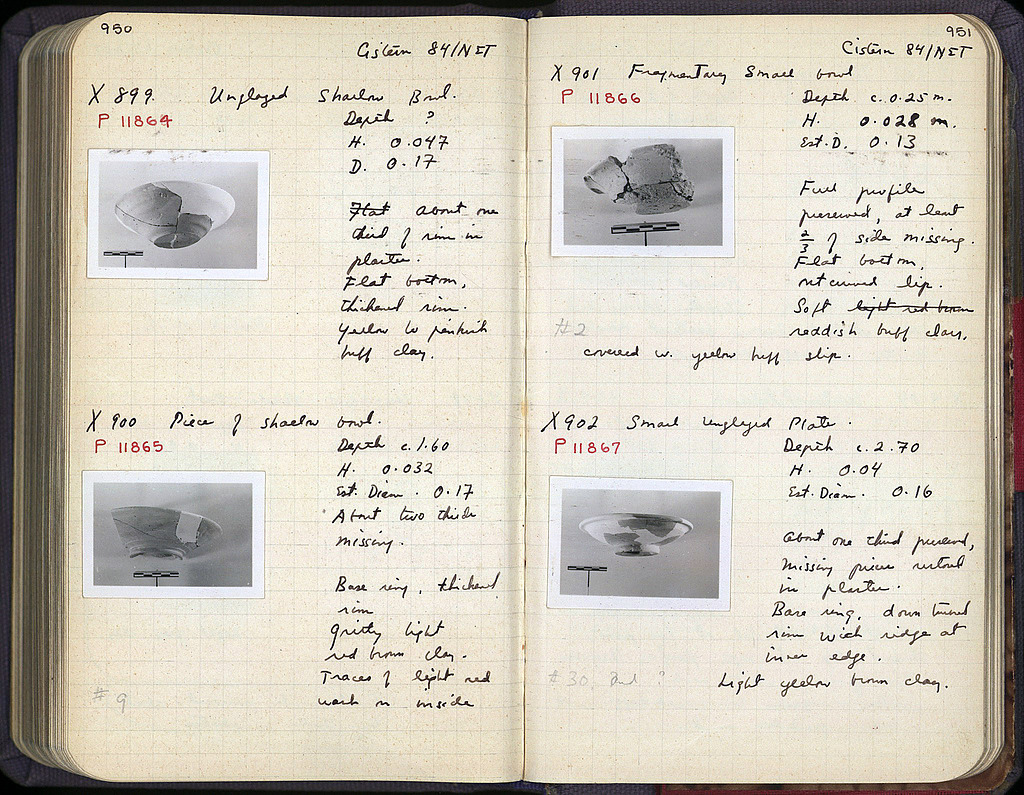 950
Cistern 84/ΝΣΤ
X 899. Unglazed Shallow Bowl.
P 11864
Depth ?
H. 0.047
D. 0.17
Flat about one
third of rim in
plaster.
Flat bottom,
thickened rim.
Yellow to pinkish
buff clay.
X 900 Piece of shallow bowl.
P 11865
Depth c.1.60
H. 0.032
Est. Diam. 0.17
About two thirds
missing.
Base ring, thickened
rim
gritty light
red brown clay.
Traces of light red
wash on inside
# 9
951
Cistern 84/ΝΣΤ
X 901 Fragmentary Small bowl
P 11866
Depth c. 0.25 m.
H. 0.028 m.
Est. D. 0.13
Full profile
preserved, at least
2/3 of side missing.
Flat bottom,
outcurved lip.
Soft light red brown
reddish buff clay,
#2
covered w. yellow buff slip.
X 902 Small unglazed Plate.
P 11867
Depth c. 2.70
H. 0.04
Est. Diam. 0.16
About one third preserved,
Missing pieces restored
in plaster.
Base ring, down turned
rim with ridge at
inner edge.
Light yellow brown clay.
# 30 ?